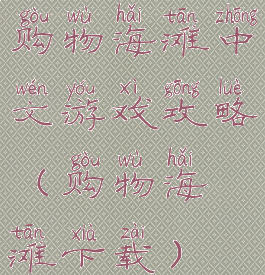 gòu wù hǎi tān zhōng
购物海滩中
wén yóu xì gōng lüè
文游戏攻略
gòu wù hǎi
（购物海
tān xià zài
滩下载）